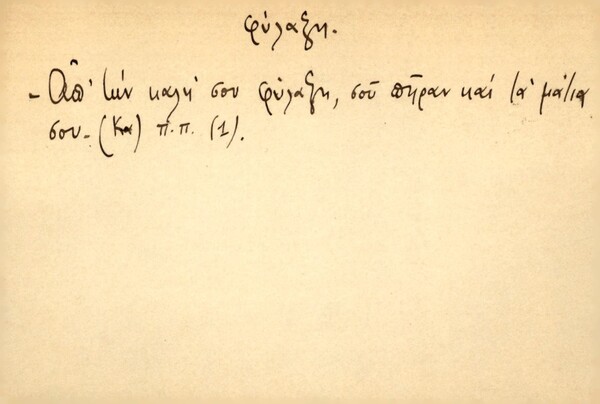 φύλαξη.
- Ἀπ' τήν καλή σου φύλαξη, σοῦ πῆραν καί τά μάτια
σου. (Κα) π.π. (1).